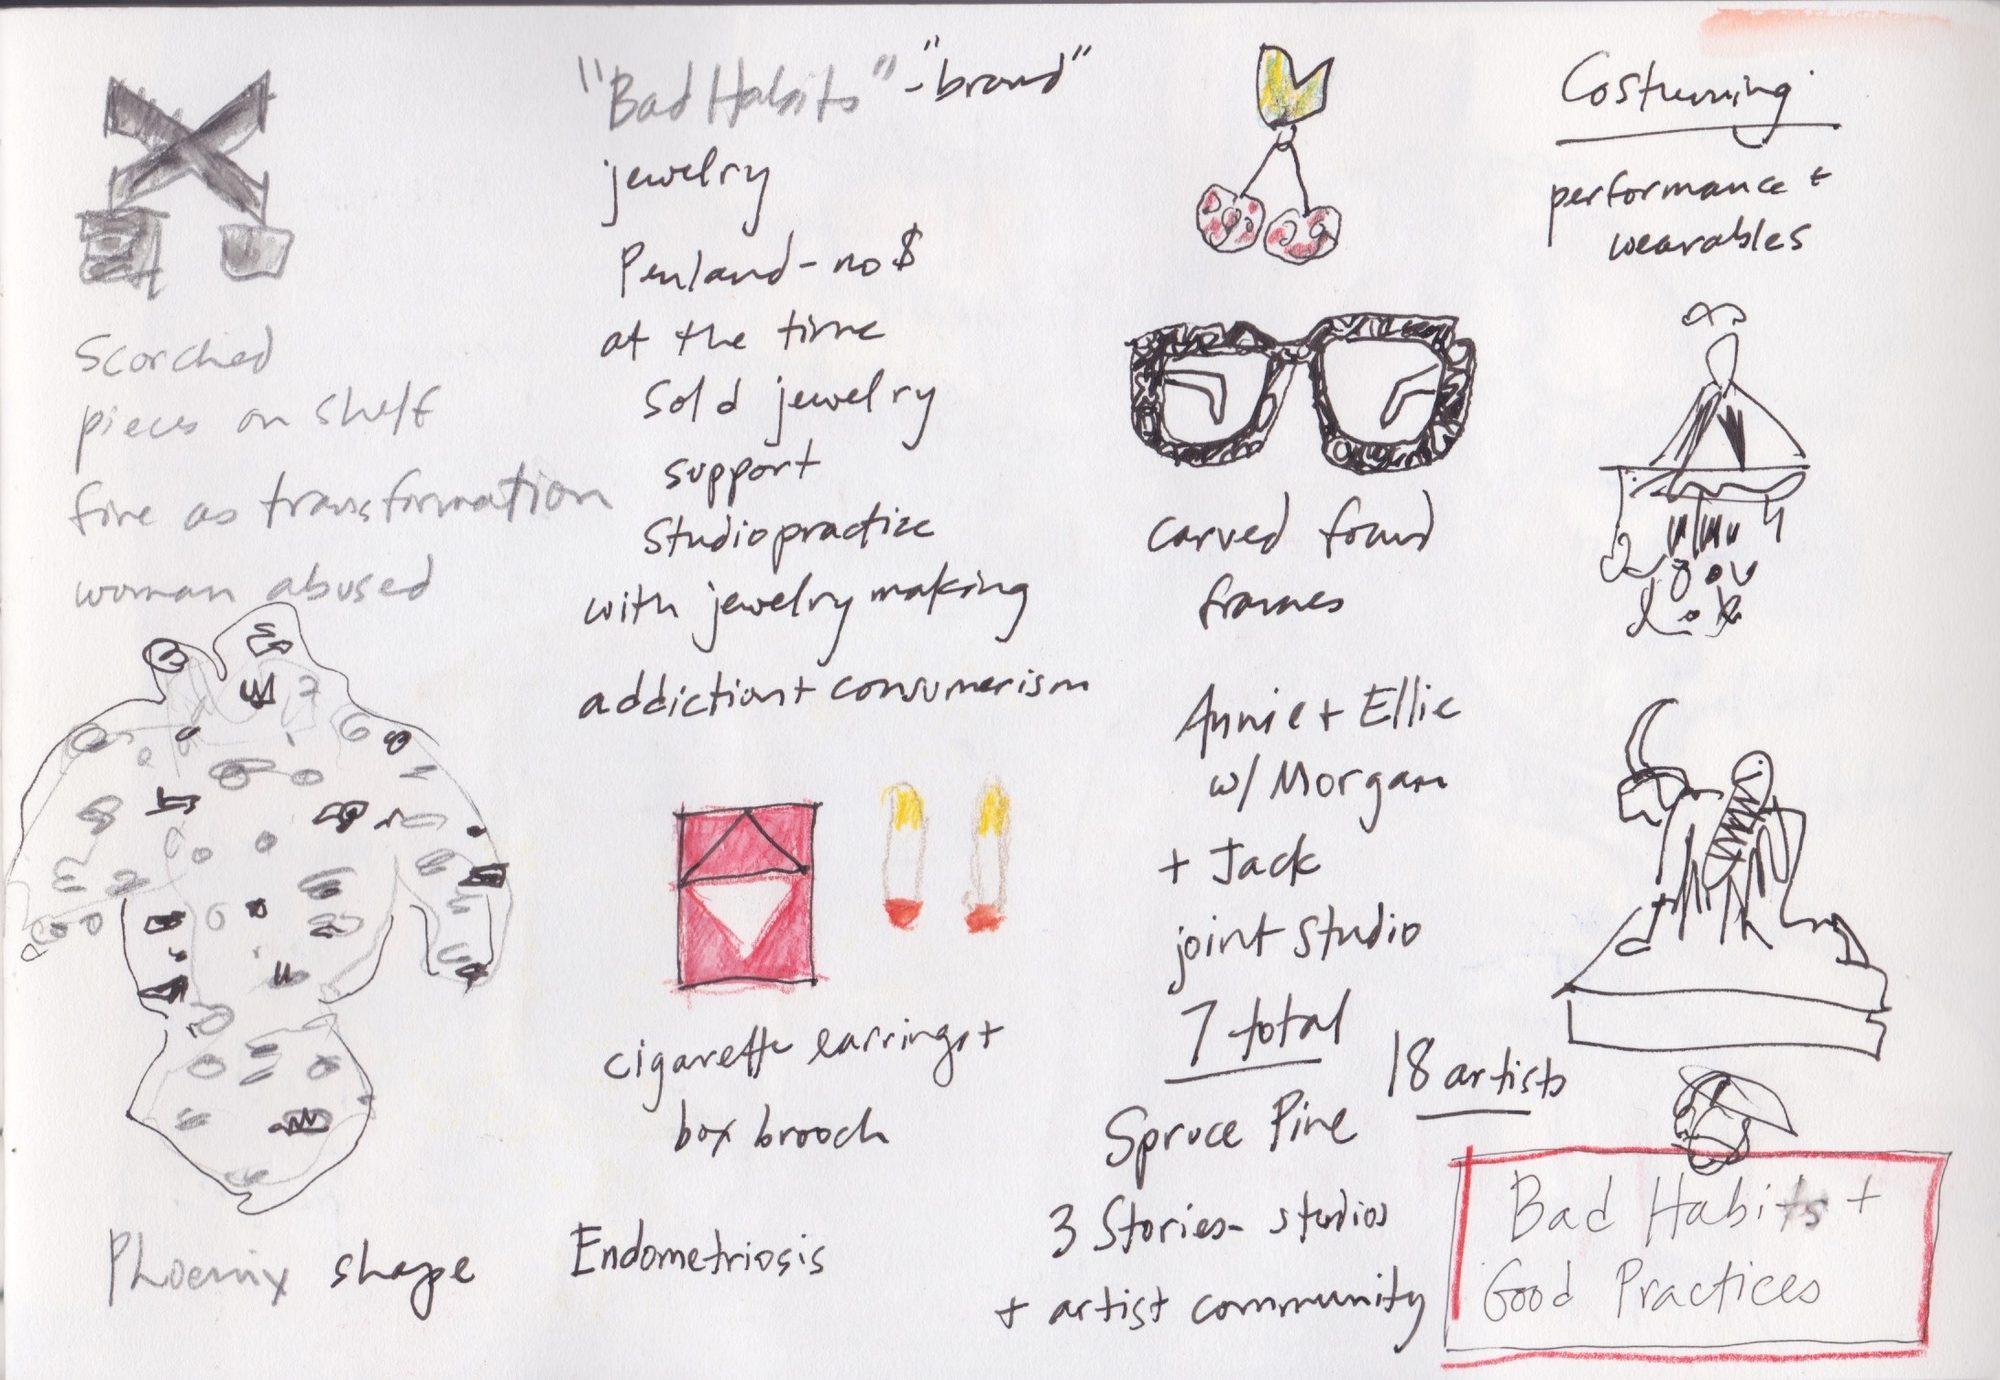 Scorched
pieces on shelf
fire as transformation
woman abused
Phoenix shape
"Bad Habits" - "brand"
jewelry
Penland - no $
at the time
sold jewelry
support
studio practice
with jewelry making
addiction + consumerism
cigarette earrings +
box brooch
Endometriosis
carved found
frames
Annie + Ellie
w/ Morgan
+ Jack
joint studio
7 total
18 artists
Spruce Pine
3 Stories - studios
+ artist community
Costuming
performance +
wearables
Bad Habits +
Good Practices